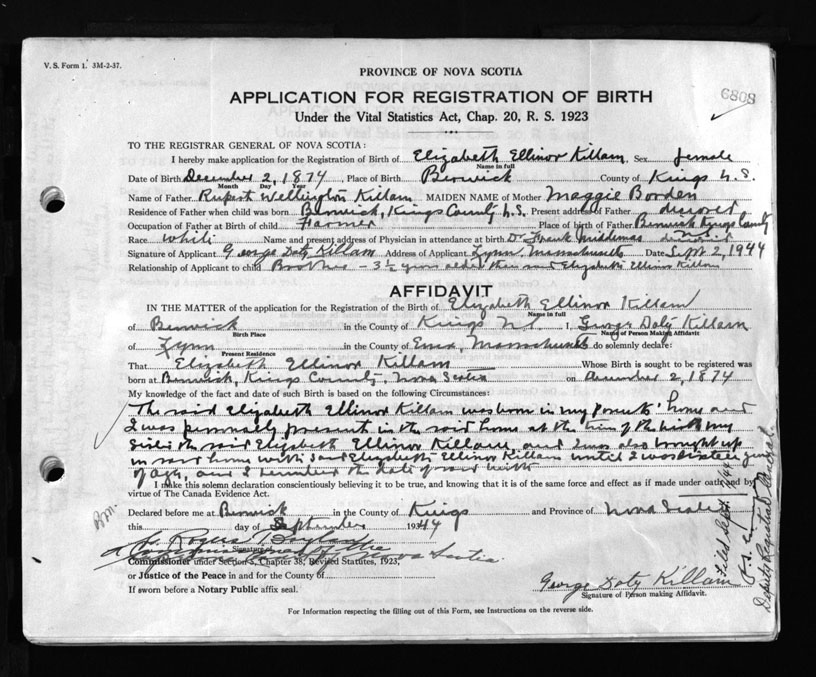 V. S. Form 1. 3M-2-37.
PROVINCE OF NOVA SCOTIA
6808
APPLICATION FOR REGISTRATION OF BIRTH
Under the Vital Statistics Act, Chap. 20, R. S. 1923
TO THE REGISTRAR GENERAL OF NOVA SCOTIA:
I hereby make application for the Registration of Birth of Elizabeth Ellinor Killam, Sex female
Name in full
Date of Birth December 2, 1874, Place of Birth Berwick County of Kings N.S.
Month Day Year
Name of Father Rupert Wellington Killam MAIDEN NAME of Mother Maggie Borden
Residence of Father when child was born Berwick, Kings County N.S. Present address of Father deceased
Occupation of Father at Birth of child Farmer Place of birth of Father Berwick Kings County
Race white Name and present address of Physician in attendance at birth Dr. Frank deceased
Signature of Applicant George Doty Killam Address of Applicant Lynn, Massachusetts Date Sept 2, 1944
Relationship of Applicant to child Brother - 3½ years older than said Elizabeth Ellinor Killam
AFFIDAVIT
IN THE MATTER of the application for the Registration of the Birth of Elizabeth Ellinor Killam
Name in full
of Berwick in the County of Kings N.S. I, George Doty Killam
Birth Place Name of Person Making Affidavit
of Lynn in the County of Essex, Massachusetts do solemnly declare:
Present Residence
That Elizabeth Ellinor Killam Whose Birth is sought to be registered was
born at Berwick, Kings County, Nova Scotia on December 2, 1874
My knowledge of the fact and date of such Birth is Based on the following Circumstances:
The said Elizabeth Ellinor Killam was born in my parents' home and
I was personally present in the said home at the time of the birth of my
sister the said Elizabeth Ellinor Killam, and I was also brought up
in said home with said Elizabeth Ellinor Killam until I was sixteen years
of age, and I remember the date of said birth
I make this solemn declaration conscientiously believing it to be true, and knowing that it is of the same force and effect as if made under oath and by
virtue of The Canada Evidence Act.
Declared before me at Berwick in the County of Kings and Province of Nova Scotia
this day of September 1944
Signature
a Commissioner of the Supreme Court of Nova Scotia
Commissioner under Section 3, Chapter 38, Revised Statutes, 1923,
or Justice of the Peace in and for the County of
If sworn before a Notary Public affix seal.
George Doty Killam
Signature of Person making Affidavit.
For Information respecting the filling out of this Form, see Instructions on the reverse side.
Filed Sept
Deputy Registrar General